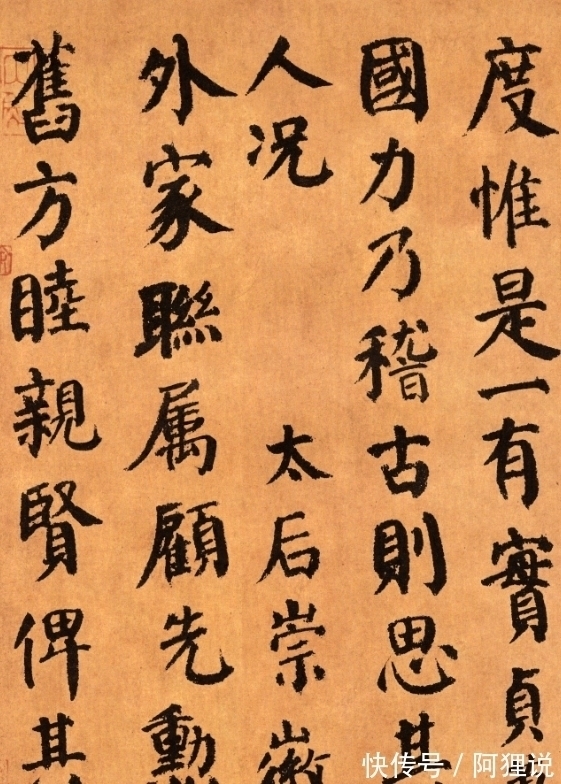 度惟是一有實貞
國力乃稽古則思其
人况 太后崇徽
外家聯属顧先勲
舊方睦親賢俾其
快传号 / 阿狸说